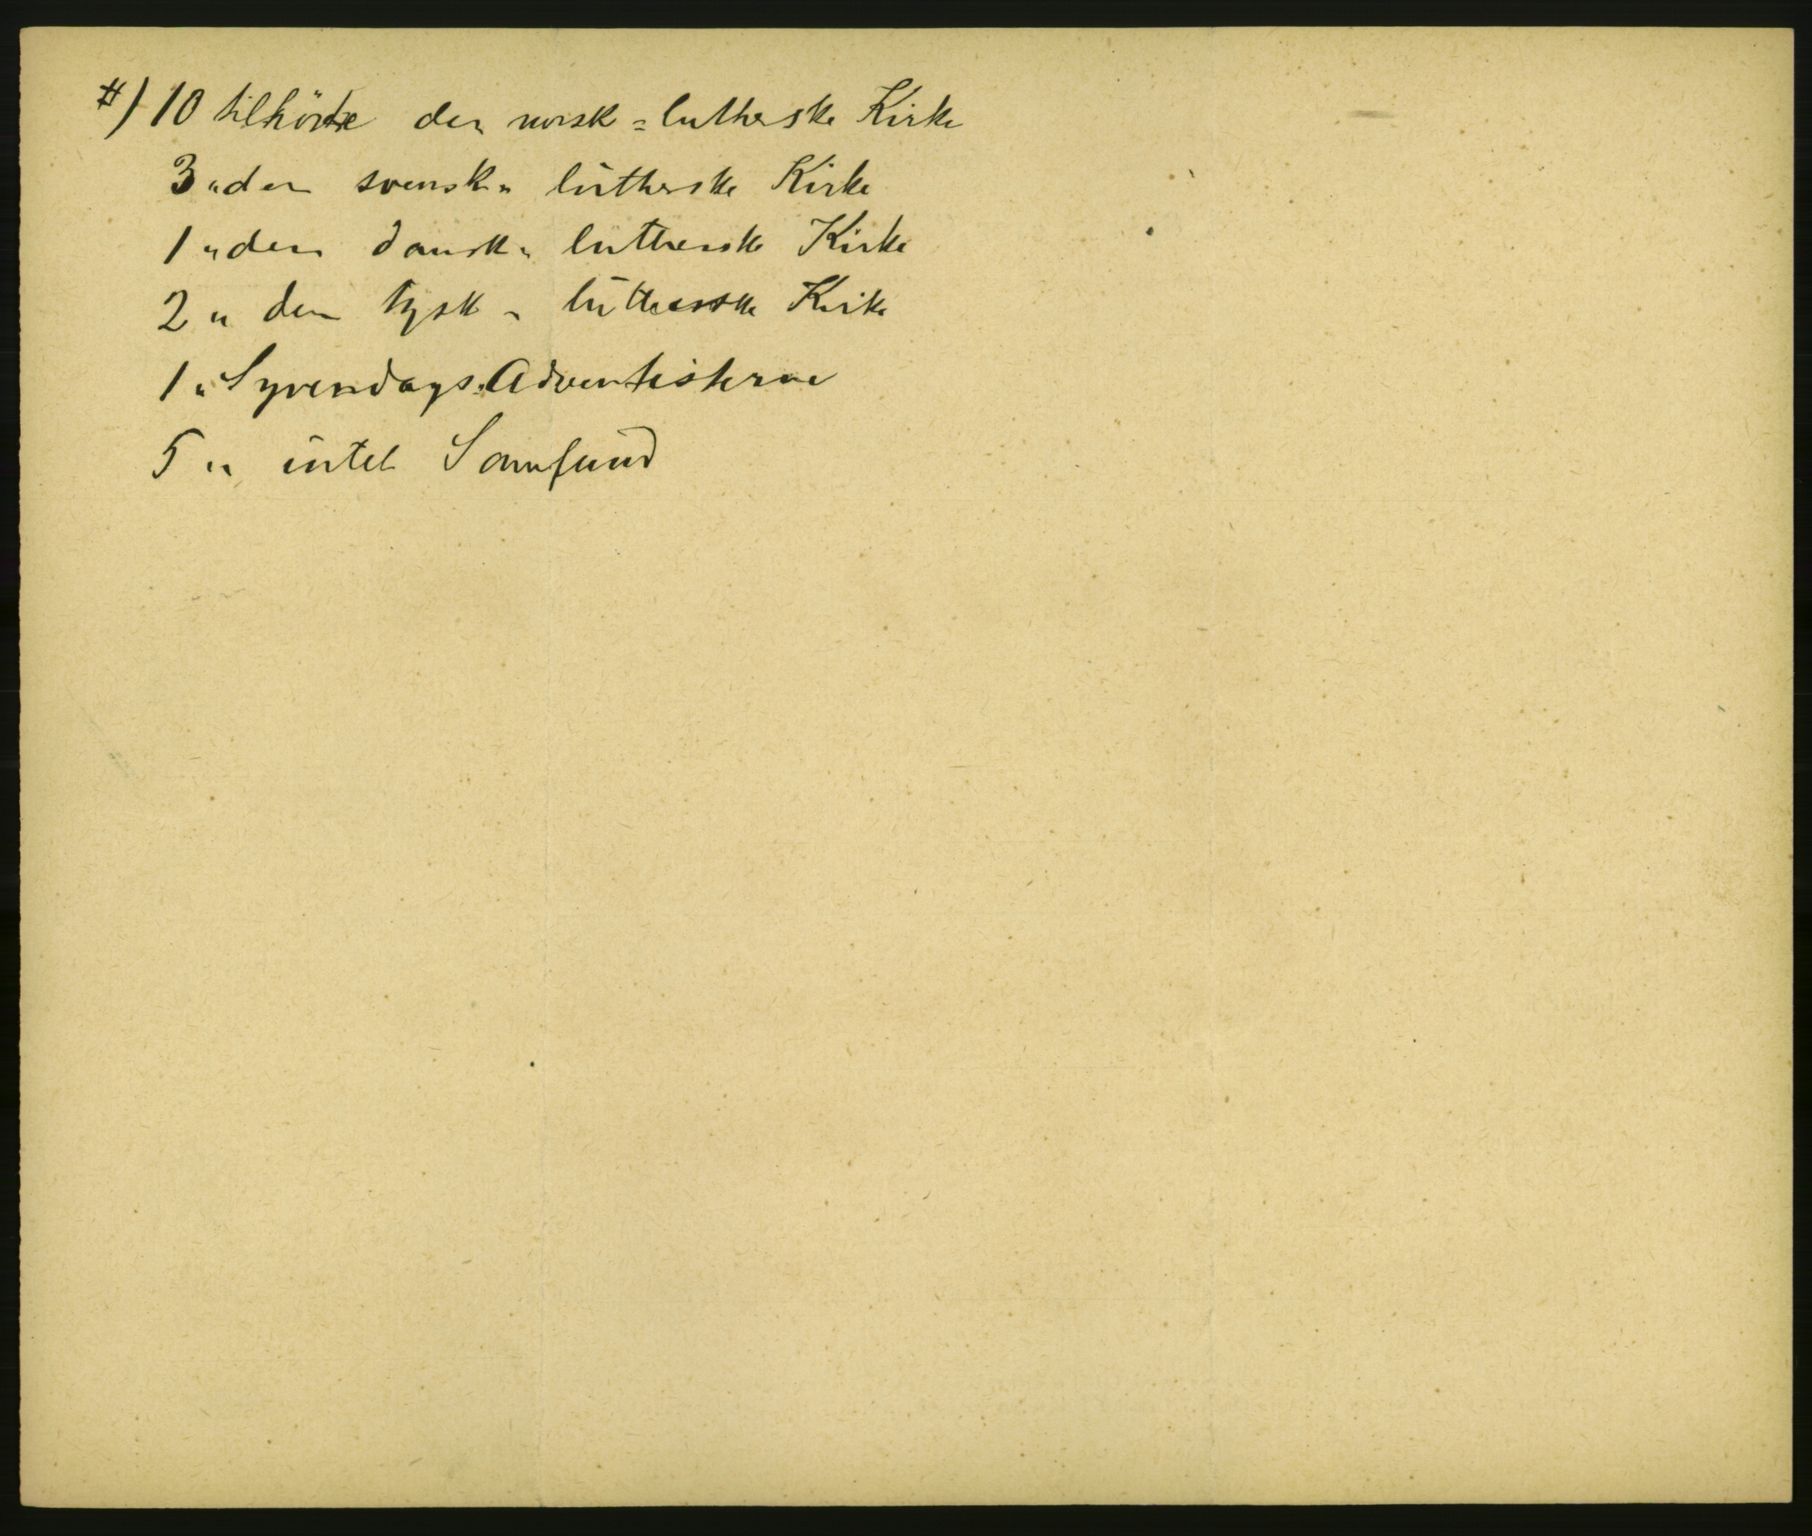 #) 10 tilhörte den norsk=lutherske Kirke
3 " den svensk " lutherske Kirke
1 " den dansk " lutherske Kirke
2 " den tysk - lutherske Kirke
1 " Syvendags-Adventisterne
5 " intet Samfund